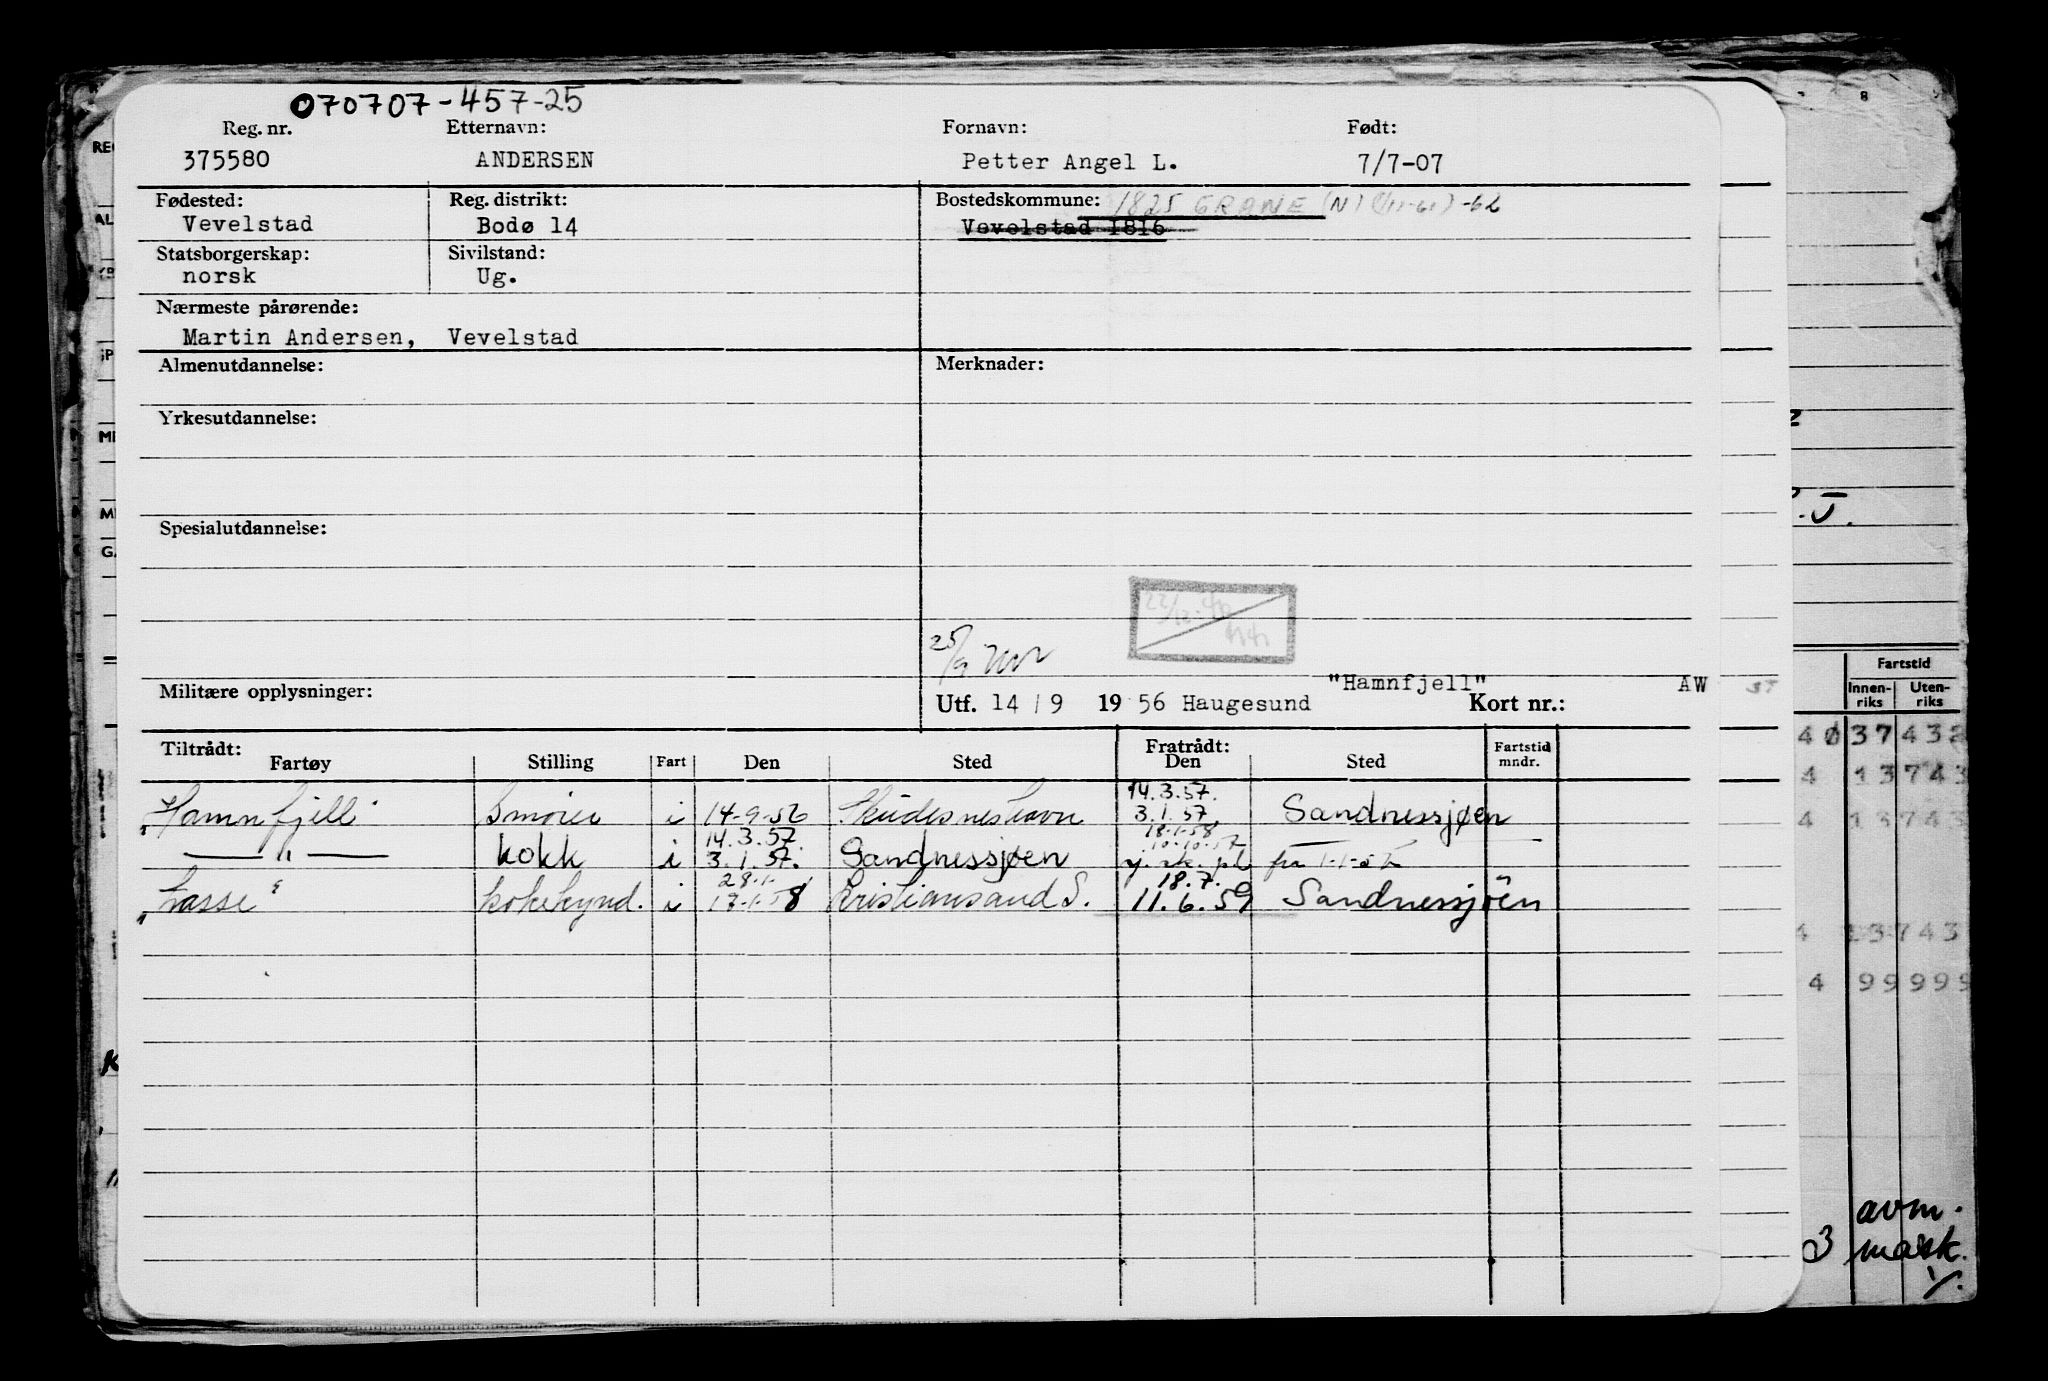 070707-457-25
Reg. nr. Etternavn: Fornavn: Født:
375580 ANDERSEN Petter Angel L. 7/7-07
Fødested: Reg. distrikt: Bostedskommune: 1825 GRANE (N)
Vevelstad Bodø 14 Vevelstad 1816
Statsborgerskap: Sivilstand:
norsk Ug.
Nærmeste pårørende:
Martin Andersen, Vevelstad
Almenutdannelse: Merknader:
Yrkesutdannelse:
Spesialutdannelse:
25/9
"Hamnfjell" AW
Militære opplysninger: Utf. 14 / 9 19 56 Haugesund Kort nr.:
Tiltrådt: Fratrådt: Fartstid
Fartøy Stilling Fart Den Sted Den Sted mndr.
14.3.57.
"Hamnfjell" Smører i 14-9-56 Skudesneshavn 3.1.57. Sandnessjøen
14.3.57. 18.1.58 10.10.57
— " — kokk i 3.1.57. Sandnessjøen fra 1-1-57
28.1. 18.7.
"Lasse" kokekynd. i 17.1.58 Kristiansand S. 11.6.59 Sandnessjøen
8
P.J.
Fartstid
Innen-riks Uten-riks
4 0 37 432
4 13 743
4 13 743
4 13 743
4 99 999
avm.
3 mask.